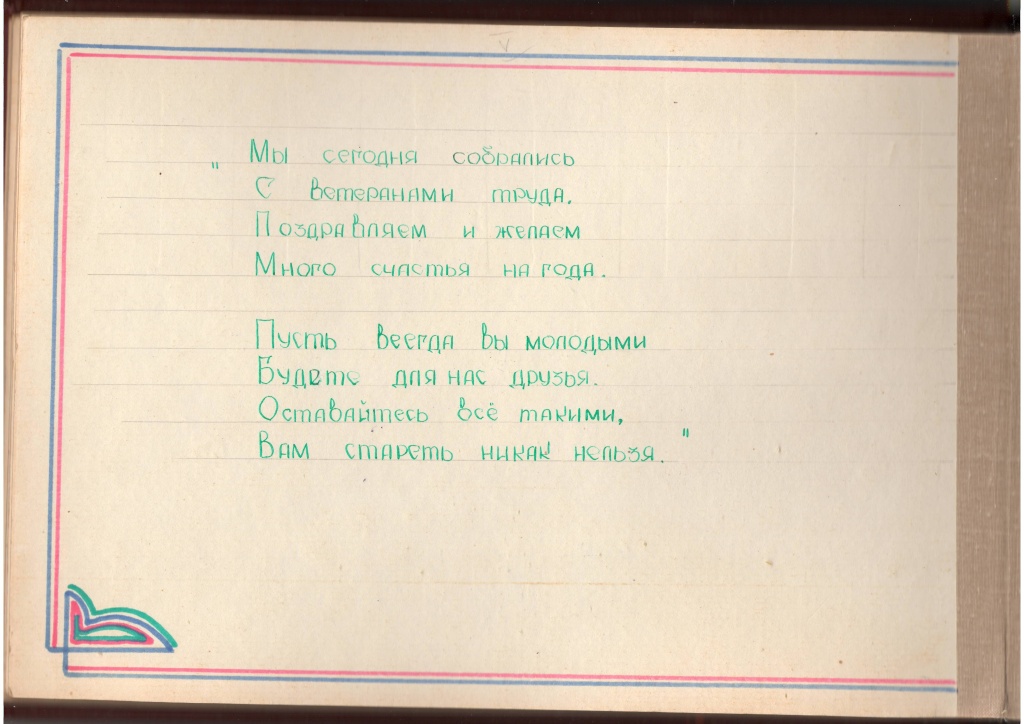 " Мы сегодня собрались
С ветеранами труда.
Поздравляем и желаем
Много счастья на года.
Пусть всегда вы молодыми
Будете для нас друзья.
Оставайтесь всё такими,
Вам стареть никак нельзя. "